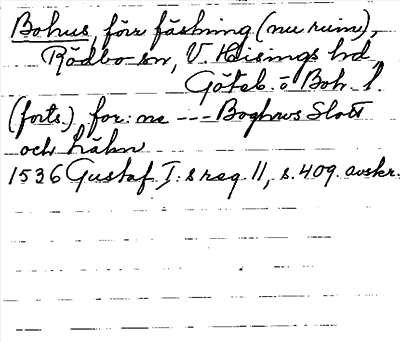 Bohus, förr fästning (nu ruin),
Rödbo sn, V. Hisings hd
Göteb. o Boh. l.
(forts.) for: ne --- Boghws Slott
och häkn
1536 Gustaf I:s reg. 11, s. 409. avskr.